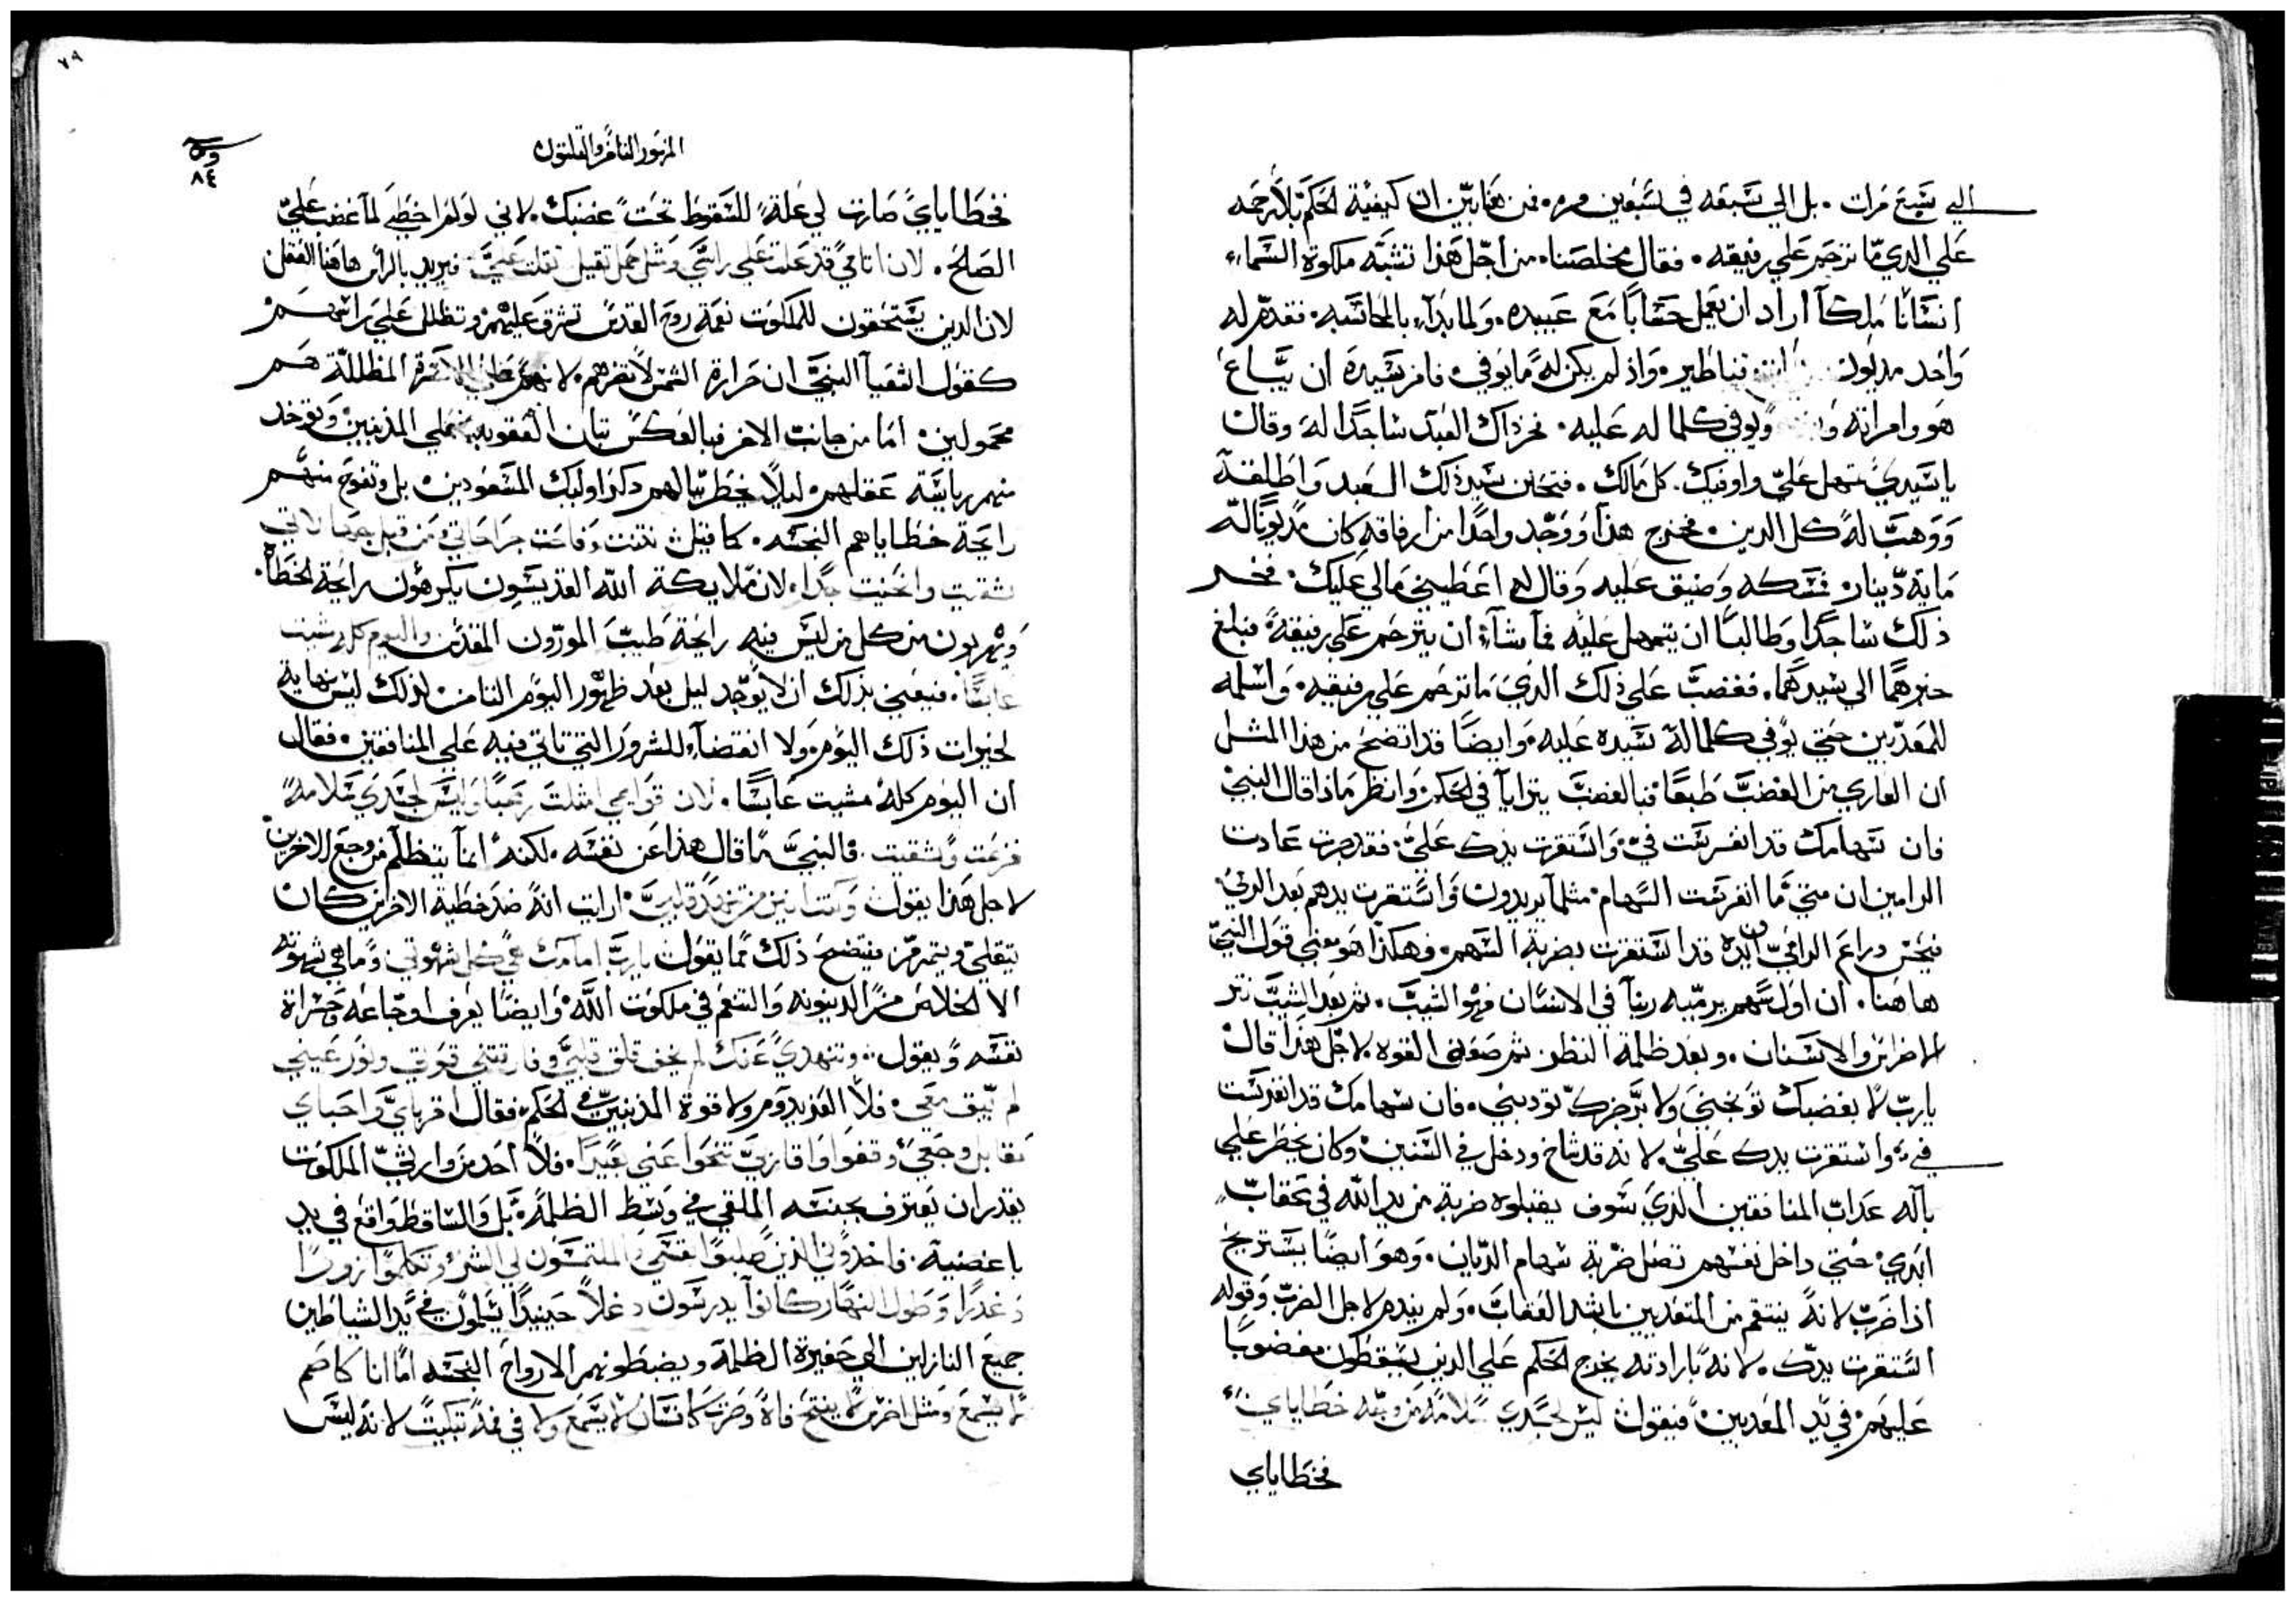 الي سَبع مَرات. بل الي سَبعه في سَبعين مره. فمن هَنا يبيّن ان كيفية الحكم بلا رحمه
علي الدي مّا ترحمَ علي رفيقه. فقال مخلصَنا. من اجّل هَذا تشبّه ملكوة السَماء
انسَانًا مَلكاً أراد ان يعَمل حسَابًا مَع عَبيده. ولما بدآء بالمحاسَبه. فقدّم له
وَاحد مديون قناطير. وَاذ لم يكن له مَا يوفي. فامر سَيدهَ ان يبَّاع
هَو وامراته ويوفي كلما له عَليه. فخر ذاك العَبد سَاجدًا لهَ وقال
يا سَيدي تمهل عَليّ واوفيك. كل مَالك. فتحنن سَيد ذلك العَبد وَاطلقهَ
وَوَهبَ لهَ كل الدين. فخرج هذا ووَجّد واحدًا من ارفاقه كان مديونًا لهّ
مَاية دّينار. فمَسَكه وَضيق عَليه وَقال له اعَطيني مَالي عَليك. فخر
ذلك سَاجدًا وَطالبًا ان يتمهل عَليه فمآ شآء ان يترحمَ عَلي رفيقهَ فبلغ
خبرهمَا الي سَيدهمَا. فغضبَ عَلي ذلك الديَ مَا ترحمَ عَلي رفيقه. وَاسَلمه
للمَعَذّبين حَتي يوَفي كلما لهَ سَيده عَليه. وَايضًا قد اتضحَ من هذا المثل
ان العَاري من الغضبَ طبعًا فبالغضبَ يترايآ في الحَكم. وَانظر مَاذا قال النبيّ
فان سَهامك قد انغرسَت فيّ. وَاسَتقرت يدك عَليّ. فقد جرت عَادت
الرامين ان متي مَا انغرسَت السَهام. مثلمآ يريدون وَاسَتقرت يدهم بَعد الرميُ
فيحَسّ دراع الرامّي ان يده قد اسَتقرت بضربة السَهم. فهكذا هَو معَني قول النبيّ
هَاهَنا. ان اوَل سَهم يرمّيه ربنآ في الانسَان فهَو الشيبَ. ثم بعَد الشيبَ تتر
الاضراسَ والاسَنان. وبعَد ظلمة النظر. ثم ضعَف القوه. لاجّل هَذا قال
ياربّ لا بغضبك توبخنيَ ولا برَجزك توَدبنيُ. فان سَهامك قد انغرسَت
فيَ. وَاسَتقرت يدك عَليّ. لانه قد شاخ ودخل في السَنين. وكان يخطر عَلي
بآله عَداب المنافقين الذي سَوف يقبلوه ضربة من يد الله في عَقابّ
ابَدي. حَتي داخل نفسَهم تصَل ضربة سَهام الدّيان. وَهو ايضًا يسَتريح
اذا ضرَب لانهَ ينتقم من المتعَدين باشد العَقابَ. وَلم يندم لاجل الضربّ وَقوله
اسَتقرت يدَك. لانه بارادته يخرج الحَكم عَلي الدين يسَقطون مغضوبًا
عَليهمَ. في يدّ المعَدبين. فيقول ليسَ لجسَدي سَلامة من وجّه خطاياي.
فخطاياي

المزمور السَابع والتلتون
فخطاياي صَارت لي عَلة للسَقوط تحَت غضبك. لاني لوَ لم اخطيَ لما غضب عَليّ
الصَلحَ. لان اتامي قد عَلت عَلي راسَي وَمثل حَمل تقيل تقلت عَليّ. فيريد بالراسَ هَاهَنا العَقل
لان الدين يسَتحَقون للملكوت نعَمة روحَ القدسَ تشرق عَليهم. وتظلل عَلي راسَهم
كقول اشعَيآ النبيّ ان حَرارة الشمسَ لا تضرهم. لانهم المظللّة هَم
محَمولين. امَا من جانبَ الاخر فبالعَكسَ تبان العَقوبه. عَلي المذنبين وَيوخد
منهم رياسَة عَقلهم ليلا يخطر ببّالهم ذكر اوليك المسَعَودين. بل وتفوحَ منهم
رايحَة خطاياهم النجسَه. كما قيل نتنت وَفاحَت جراحَاتي من قبل جهالاتي
شقيت وانحَنيت جدًا. لان مَلايكة الله القديسَون يكرهَون رايحَة الخطاه.
وَيهربون من كل من ليسَ فيه رايحَة طيبَ المورّون المقدسَ. واليوم كله مشيت
عَابسًا. فيعَني بذلك ان لا يوَجّد ليل بعَد ظهَور اليوَم التامن. لذلك ليسَ نهاية
لخيرات ذلك اليوَم. وَلا انقضآء للشرور التي تاتي فيه عَلي المنافقين. فقال
ان اليوَم كلهَ مشيت عَابسًا. لان قوَامي امتلت وليسَ لجسَدي سَلامة
فزعَت وشقيت. فالنبيّ مَا قال هَذا عَن نفسَه. لكنهَ انمآ يتظلّم من وجعَ الاخرين.
لاجل هَذا يقول وكنت اين من تنهّد قلبيّ. ارايت انهَ ضد خطية الاخرين كان
يتقلي ويتمرمّر. فيتضحَ ذلك ممّا يقول ياربّ امامك هي كل شهوَتي. وَما هي شهوَته
الا الخلاصَ من الدينونه وَالتنعَم في ملكوَت اللهّ. وَايضًا يعَرف اوجّاعَه وَحسَراة
نفسَه وَيقول. وَتنهدي عَنك لم يخف قلق قلبيّ. وفارقتني قوَتي. ونوَر عَيني
لم يبّق مَعَي. فلا العَز يدوَم ولا قوة المذنبين في الحَكم. فقال اقربايَ وَاحَباي
مقابل وجعَي. وقفوا وَاقاربي تنحَوا عَني بعَيدًا. فلا احَد من وَارثيّ الملكوَت
يقدر ان يعَترف بجنسَه الملقي في وَسَط الظلمه. بَل وَالسَاقط وَاقع في يد
باغضيه. فاخدوني الذين طلبوَا نفسَي. وَالملتمسَون لي الشر. وَتكلموَا زورًا
وَغدرًا وَطول النهار كانوآ يدرسَون دغلا. حَينيدًا يسَلموَن في يَد الشياطين
جميعَ النازلين الي حَفيرة الظلمة ويضبطونهم الارواحَ النجسَه. امَا انا كاصَم
لا يسَمعَ. وَمثل اخرسَ لا يفتحَ فاه. وَصَرت كانسَان لا يسَمعَ ولا في فمه تبكيت. لانه ليسَ
٨٤
٧٩